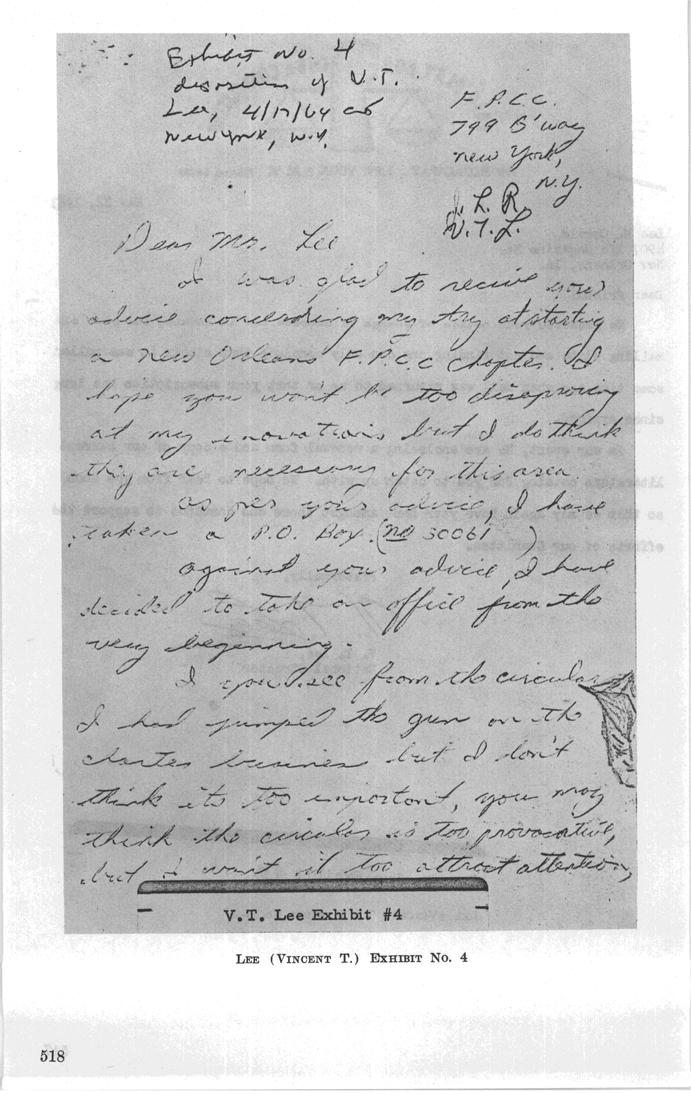 Exhibit No. 4
deposition of V.T.
Lee, 4/17/64 at
New York, N.Y.
F.P.C.C.
799 B'way
new York,
N.Y.
J.L.R.
V.T.L.
Dear Mr. Lee
I was glad to receive your
advice concerding my try at starting
a new Orleans F.P.C.C chapter. I
hope you won't be too disaproving
at my inovations but I do think
they are necessary for this area
as per your advice, I have
taken a P.O. Box (no 30061 )
against your advice, I have
decided to take an office from the
very beginning.
I you see from the circular
I had jumped the gun on the
charter business but I don't
think its too important, you may
think the circular is too provocative,
but I want it too attract attention,
V.T. Lee Exhibit #4
LEE (VINCENT T.) EXHIBIT NO. 4
518